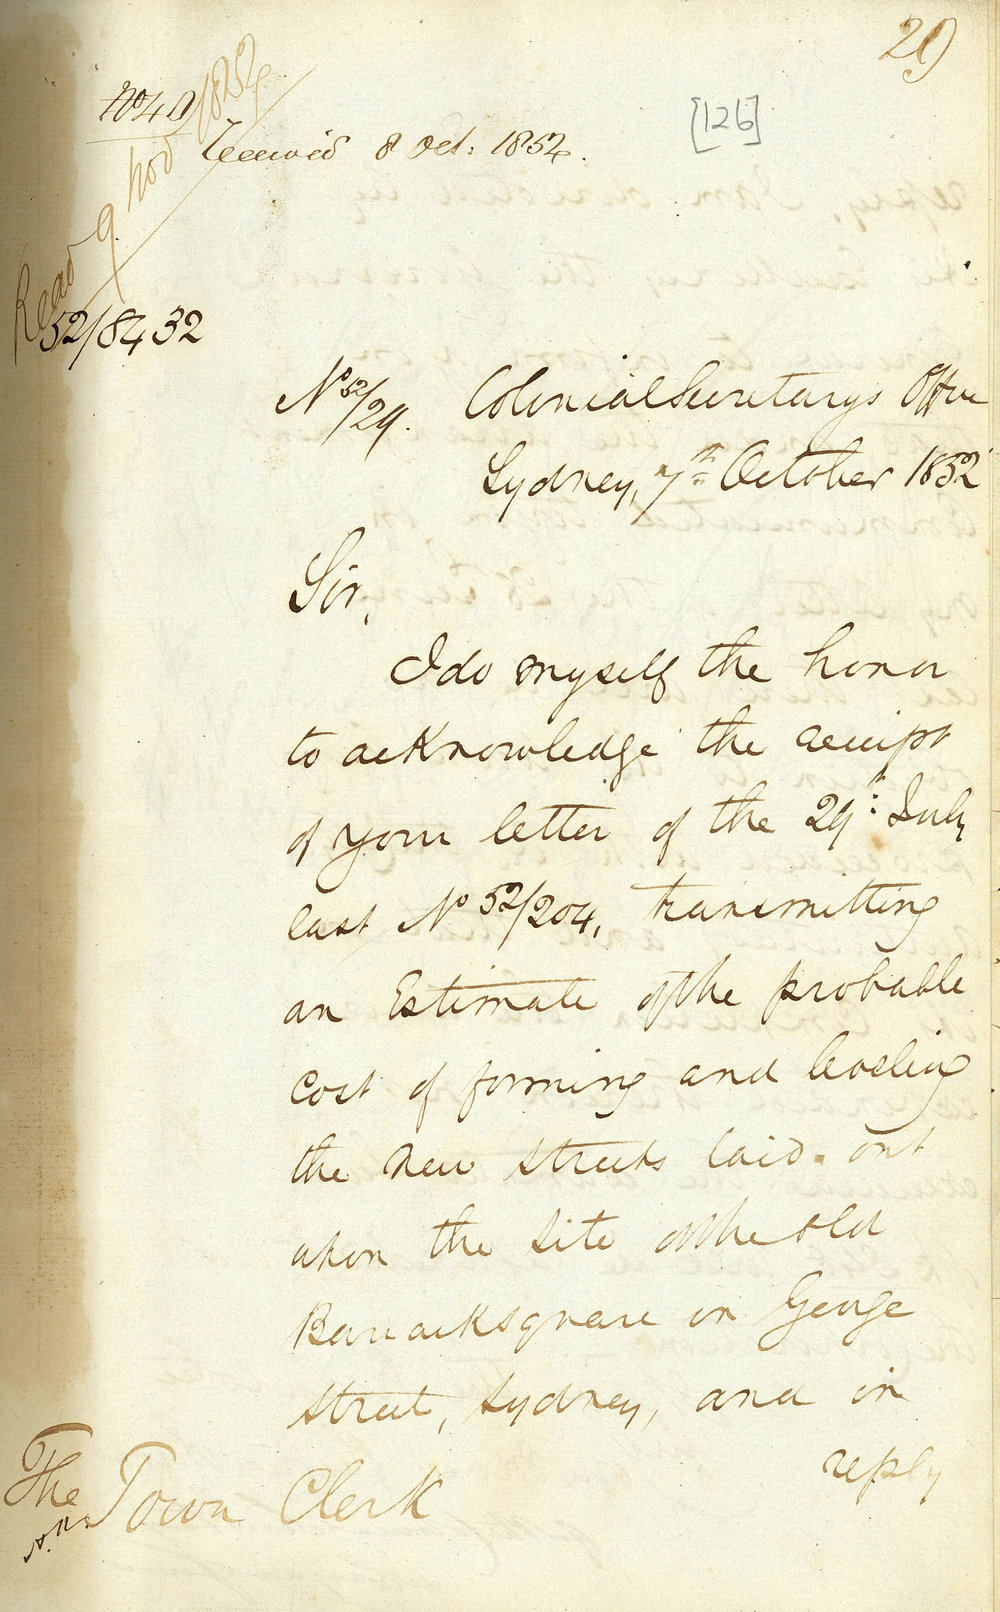 29
[126]
Received 8 Oct. 1852.
Read 9
52/8432
No 52/29. Colonial Secretarys Office
Sydney, 7th October 1852
Sir,
I do myself the honor
to acknowledge the receipt
of your letter of the 29th July
last No 52/204, transmitting
an Estimate of the probable
cost of forming and leveling
the new streets laid out
upon the site of the old
Barrack square in George
Street, Sydney, and in
reply
The Town Clerk